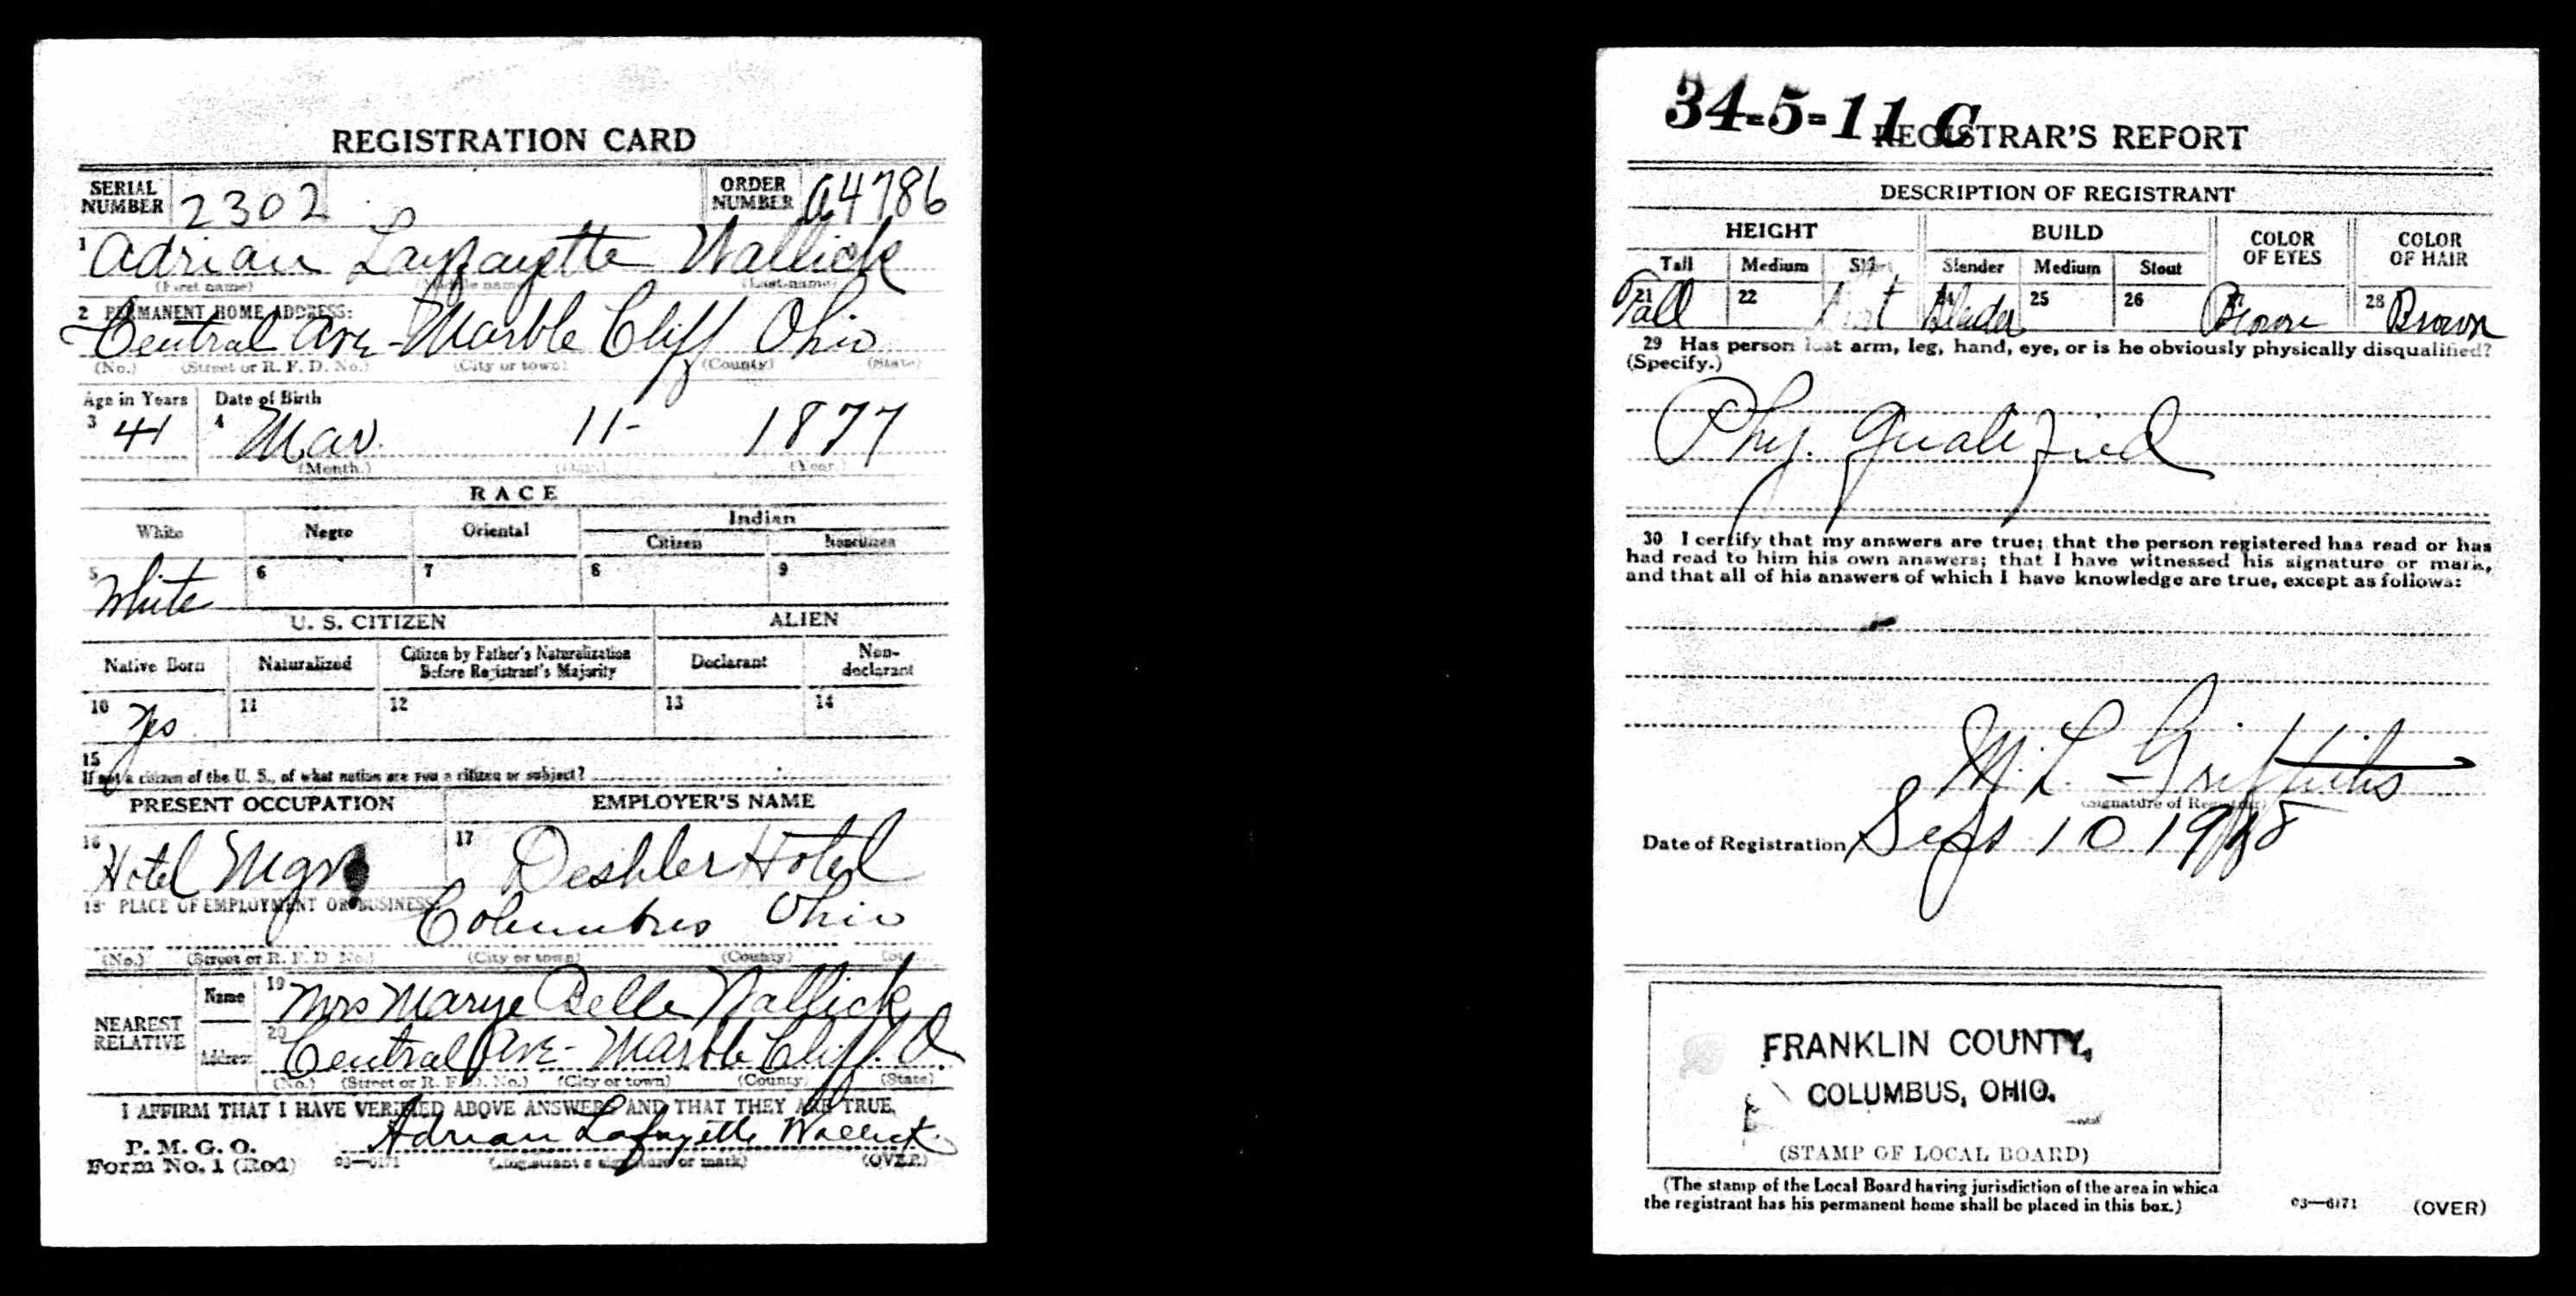 REGISTRATION CARD
SERIAL NUMBER 2302 ORDER NUMBER A4786
1 Adrian Laffayette Wallick
(First name) (Middle name) (Last name)
2 PERMANENT HOME ADDRESS:
Central Ave - Marble Cliff Ohio
(No.) (Street or R. F. D. No.) (City or town) (County) (State)
Age in Years Date of Birth
3 41 4 Mar. 11- 1877
(Month.) (Day.) (Year.)
RACE
White Negro Oriental Indian
Citizen Noncitizen
5 White 6 7 8 9
U. S. CITIZEN ALIEN
Native Born Naturalized Citizen by Father's Naturalization Before Registrant's Majority Declarant Non-declarant
10 Yes 11 12 13 14
15
If not a citizen of the U. S., of what nation are you a citizen or subject?
PRESENT OCCUPATION EMPLOYER'S NAME
16 Hotel Mgr 17 Deshler Hotel
18 PLACE OF EMPLOYMENT OR BUSINESS:
Columbus Ohio
(No.) (Street or R. F. D. No.) (City or town) (County) (State)
NEAREST RELATIVE
Name 19 Mrs Marye Belle Wallick
Address 20 Central Ave - Marble Cliff. O
(No.) (Street or R. F. D. No.) (City or town) (County) (State)
I AFFIRM THAT I HAVE VERIFIED ABOVE ANSWERS AND THAT THEY ARE TRUE.
P. M. G. O.
Form No. 1 (Red) 03—6171 Adrian Lafayette Wallick
(Registrant's signature or mark) (OVER)
34-5-11 C
REGISTRAR'S REPORT
DESCRIPTION OF REGISTRANT
HEIGHT BUILD COLOR OF EYES COLOR OF HAIR
Tall Medium Short Slender Medium Stout
21 Tall 22 24 Slender 25 26 Brown 28 Brown
29 Has person lost arm, leg, hand, eye, or is he obviously physically disqualified?
(Specify.)
Phy. Qualified
30 I certify that my answers are true; that the person registered has read or has
had read to him his own answers; that I have witnessed his signature or mark,
and that all of his answers of which I have knowledge are true, except as follows:
M. L. Griffiths
(Signature of Registrar)
Date of Registration Sept 10 1918
FRANKLIN COUNTY,
COLUMBUS, OHIO.
(STAMP OF LOCAL BOARD)
(The stamp of the Local Board having jurisdiction of the area in which
the registrant has his permanent home shall be placed in this box.)
03—6171 (OVER)